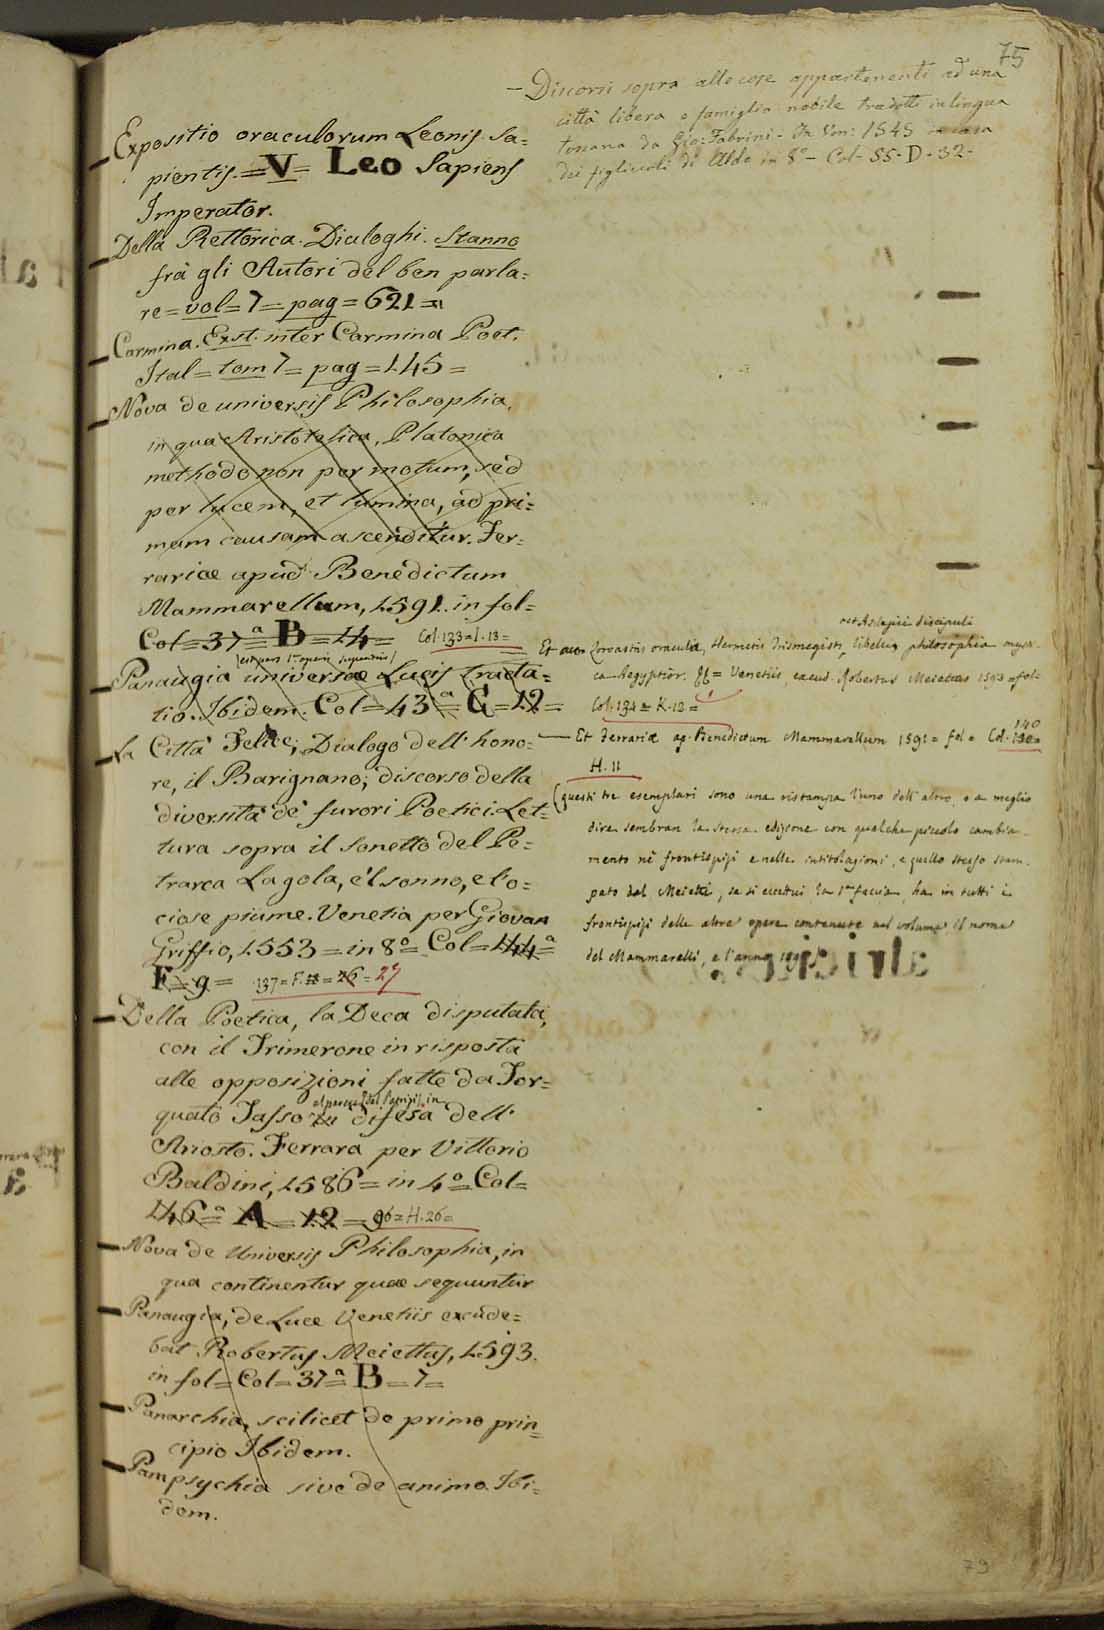 75
— Discorsi sopra alle cose appartenenti ad una
città libera e famiglia nobile tradotti in lingua
toscana da Gio: Fabrini - In Ven: 1545 in casa
dei figliuoli di Aldo in 8º - Col - 55 - D - 32 -
Expositio oraculorum Leonis Sa=
pientis. = V = Leo Sapiens
Imperator.
Della Rettorica. Dialoghi. Stanno
frà gli Autori del ben parla=
re = vol = 7 = pag = 621 =
Carmina. Exst. inter Carmina Poet.
Ital = tom 7 = pag = 145 =
Nova de universis Philosophia,
in qua Aristotelica, Platonica
methodo non per motum, sed
per lucem, et lumina, ad pri=
mam causam ascenditur. Fer=
rariæ apud Benedictum
Mammarellum, 1591. in fol=
Col = 37ª = B = 14 = Col. 133 = I. 13 =
Panaugia universæ Lucis Tracta=
tio. Ibidem. Col = 43ª = G = 12 =
La Città Felice; Dialogo dell' hono=
re, il Barignano; discorso della
diversità de' furori Poetici. Let=
tura sopra il sonetto del Pe=
trarca La gola, e'l sonno, e l'o=
ciose piume. Venetia per Giovan
Griffio, 1553 = in 8º = Col = 144ª =
F = 9 = 137 = F. = 26 = 27
Della Poetica, la Deca disputata,
con il Trimerone in risposta
alle opposizioni fatte da Tor=
quato Tasso in difesa dell'
Ariosto. Ferrara per Vittorio
Baldini, 1586 = in 4º = Col =
146ª = A = 12 = 96 = H. 26 =
Nova de Universis Philosophia, in
qua continentur quæ sequuntur
Panaugia, de Luce Venetiis excude=
bat Robertus Meiettus, 1593.
in fol = Col = 37ª = B = 7 =
Panarchia, scilicet de primo prin=
cipio Ibidem.
Pampsychia sive de animo. Ibi=
dem.
et Asclepii discipuli
Et Zoroastris oracula, Hermetis Trismegisti, libellus philosophia mysti-
ca Aegyptior. = Venetiis, excud. Robertus Meiettus 1593 = fol =
Col. 134 = K. 12 =
— Et Ferrariæ ap. Benedictum Mammarellum 1591 = fol = Col. 140
H. 11
(questi tre esemplari sono una ristampa l'uno dell' altro, o a meglio
dire sembran la stessa edizione con qualche piccolo cambia-
mento nè frontispizi e nelle intitolazioni, e quello stesso stam-
pato dal Meietti, se si eccettui la 1ª faccia, ha in tutti i
frontispizi delle altre opere contenute nel volume il nome
del Mammarelli, e l'anno 1591
79